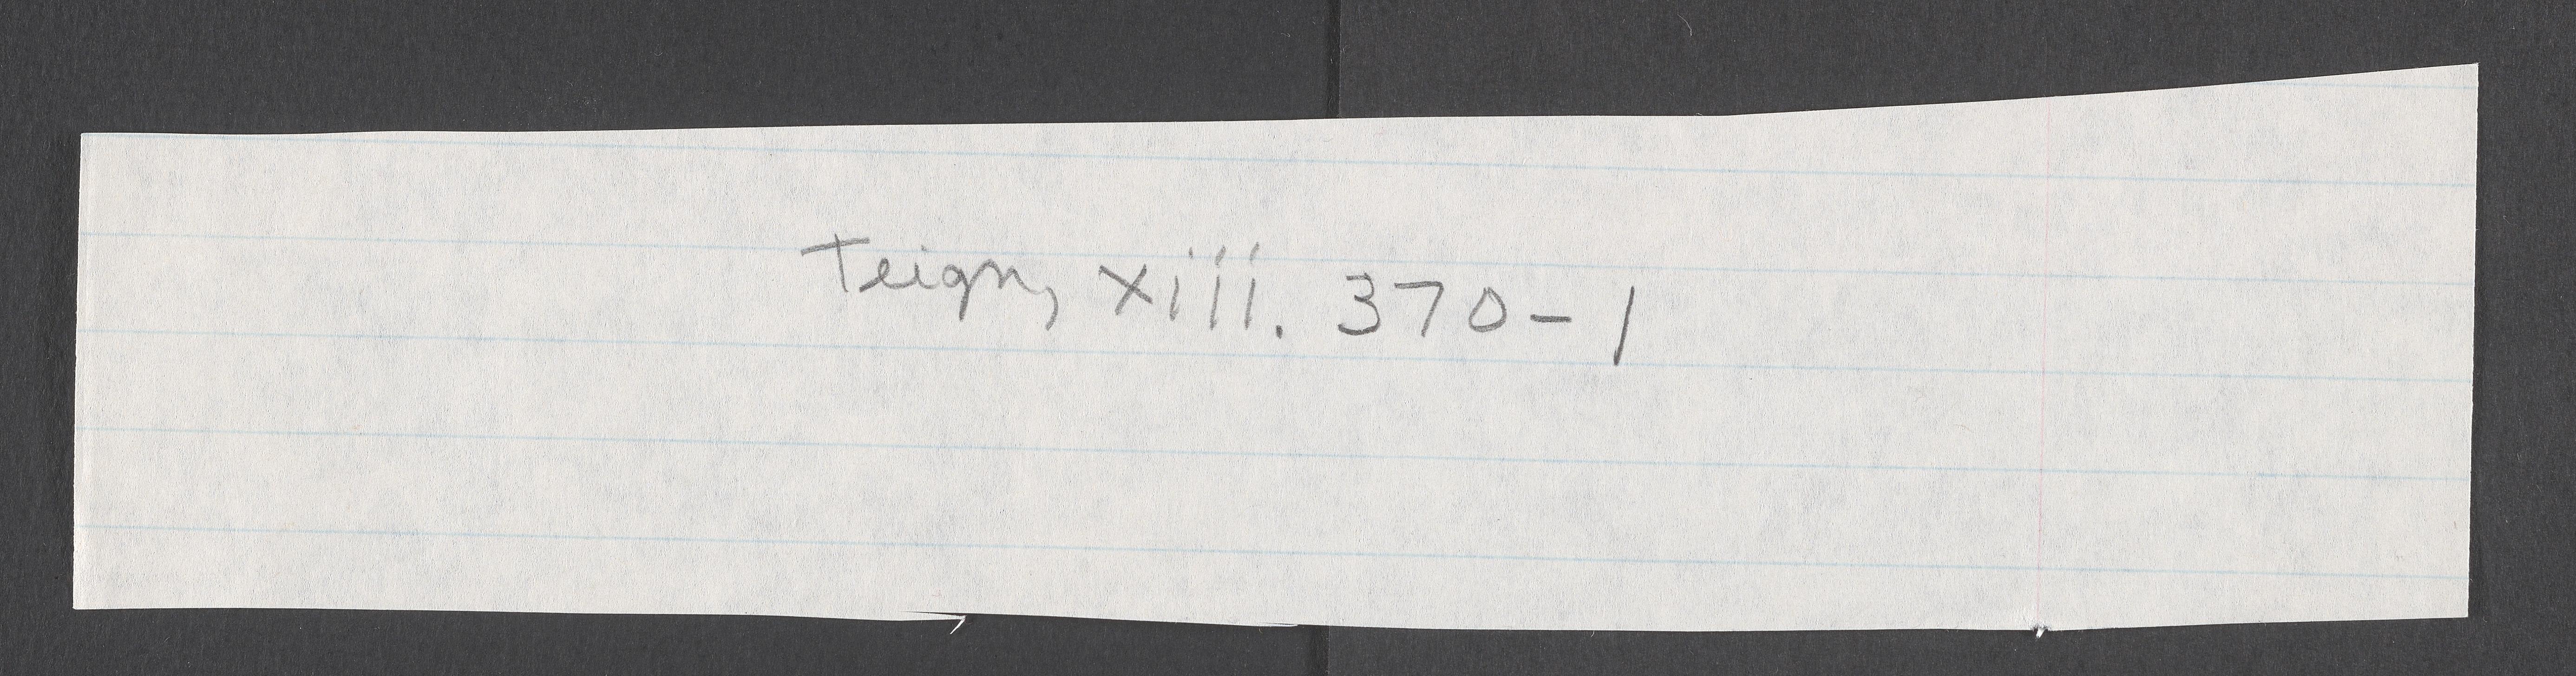 Teign, xiii. 370-1